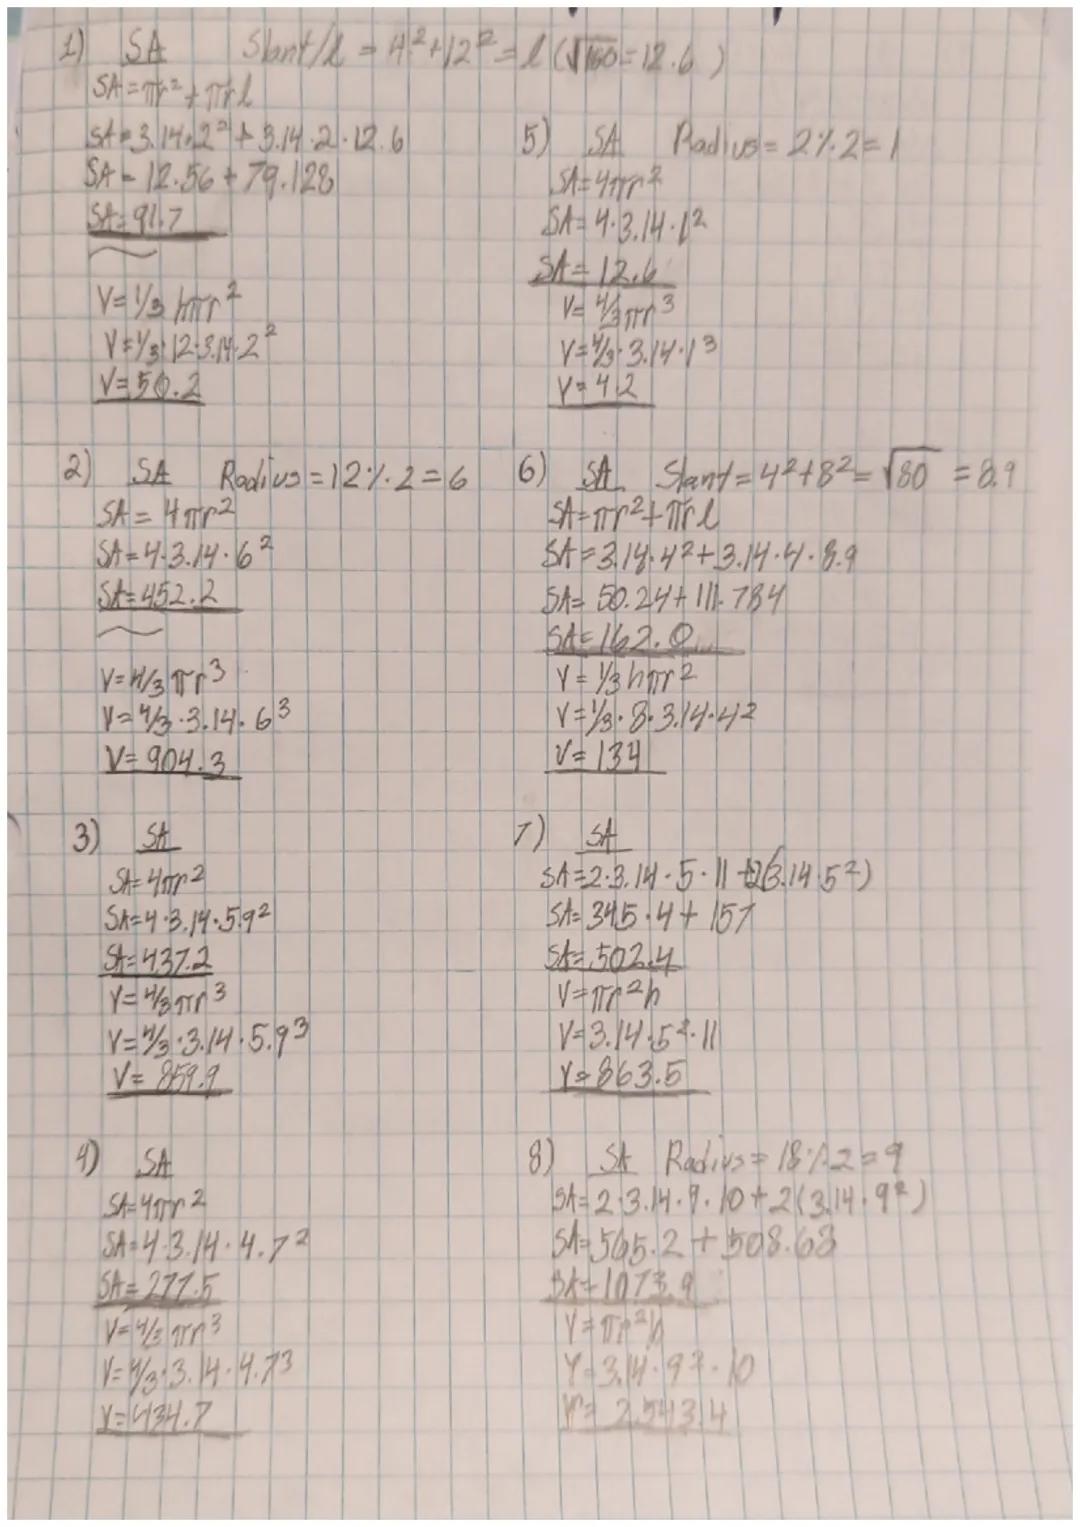 1) SA Slant/l = 4²+12² = l (√160 = 12.6)
SA = πr² + πrl
SA = 3.14·2² + 3.14·2·12.6
SA = 12.56 + 79.128
SA = 91.7
V = 1/3 hπr²
V = 1/3·12·3.14·2²
V = 50.2
2) SA Radius = 12 ÷ 2 = 6
SA = 4πr²
SA = 4·3.14·6²
SA = 452.2
V = 4/3 πr³
V = 4/3·3.14·6³
V = 904.3
3) SA
SA = 4πr²
SA = 4·3.14·5.9²
SA = 437.2
V = 4/3 πr³
V = 4/3·3.14·5.9³
V = 859.9
4) SA
SA = 4πr²
SA = 4·3.14·4.7²
SA = 277.5
V = 4/3 πr³
V = 4/3·3.14·4.7³
V = 434.7
5) SA Radius = 2 ÷ 2 = 1
SA = 4πr²
SA = 4·3.14·1²
SA = 12.6
V = 4/3 πr³
V = 4/3·3.14·1³
V = 4.2
6) SA Slant = 4²+8² = √80 = 8.9
SA = πr² + πrl
SA = 3.14·4² + 3.14·4·8.9
SA = 50.24 + 111.784
SA = 162.0
V = 1/3 hπr²
V = 1/3·8·3.14·4²
V = 134
7) SA
SA = 2·3.14·5·11 + 2(3.14·5²)
SA = 345.4 + 157
SA = 502.4
V = πr²h
V = 3.14·5²·11
V = 863.5
8) SA Radius = 18 ÷ 2 = 9
SA = 2·3.14·9·10 + 2(3.14·9²)
SA = 565.2 + 508.68
SA = 1073.9
V = πr²h
V = 3.14·9²·10
V = 2.543.4